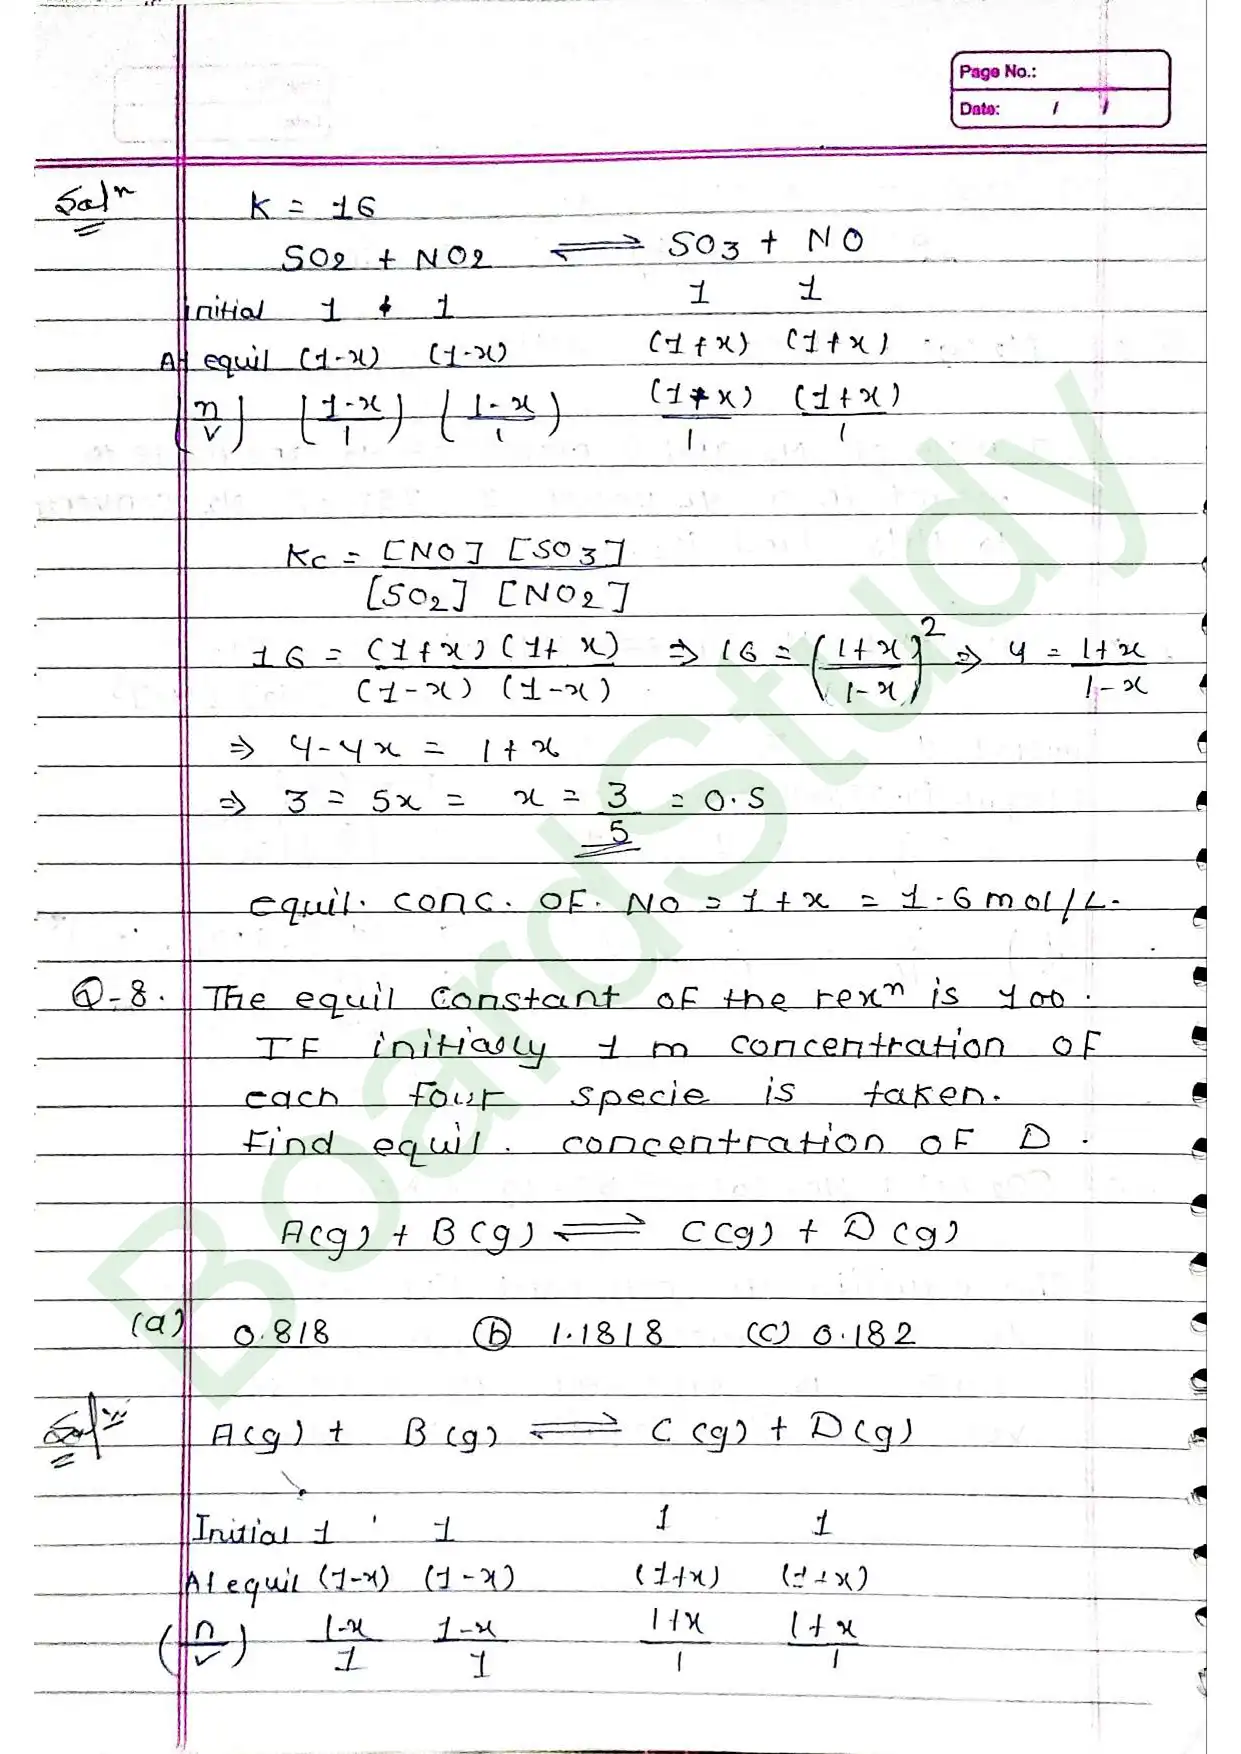 Page No.:
Date: / /
Solⁿ K = 16
SO2 + NO2 ⇌ SO3 + NO
initial 1 1 1 1
At equil (1-x) (1-x) (1+x) (1+x)
(n/v) ((1-x)/1) ((1-x)/1) (1+x)/1 (1+x)/1
Kc = [NO] [SO3] / [SO2] [NO2]
16 = (1+x) (1+x) / (1-x) (1-x) ⇒ 16 = ((1+x)/(1-x))² ⇒ 4 = (1+x)/(1-x)
⇒ 4-4x = 1+x
⇒ 3 = 5x = x = 3/5 = 0.5
equil. conc. OF. NO = 1+x = 1.6 mol/L.
Q-8. The equil constant OF the rexⁿ is 100.
IF initially 1 m concentration OF
each four specie is taken.
Find equil. concentration OF D.
A(g) + B(g) ⇌ C(g) + D(g)
(a) 0.818 (b) 1.1818 (c) 0.182
Solⁿ A(g) + B(g) ⇌ C(g) + D(g)
Initial 1 1 1 1
At equil (1-x) (1-x) (1+x) (1+x)
(n/v) (1-x)/1 (1-x)/1 (1+x)/1 (1+x)/1
BoardStudy